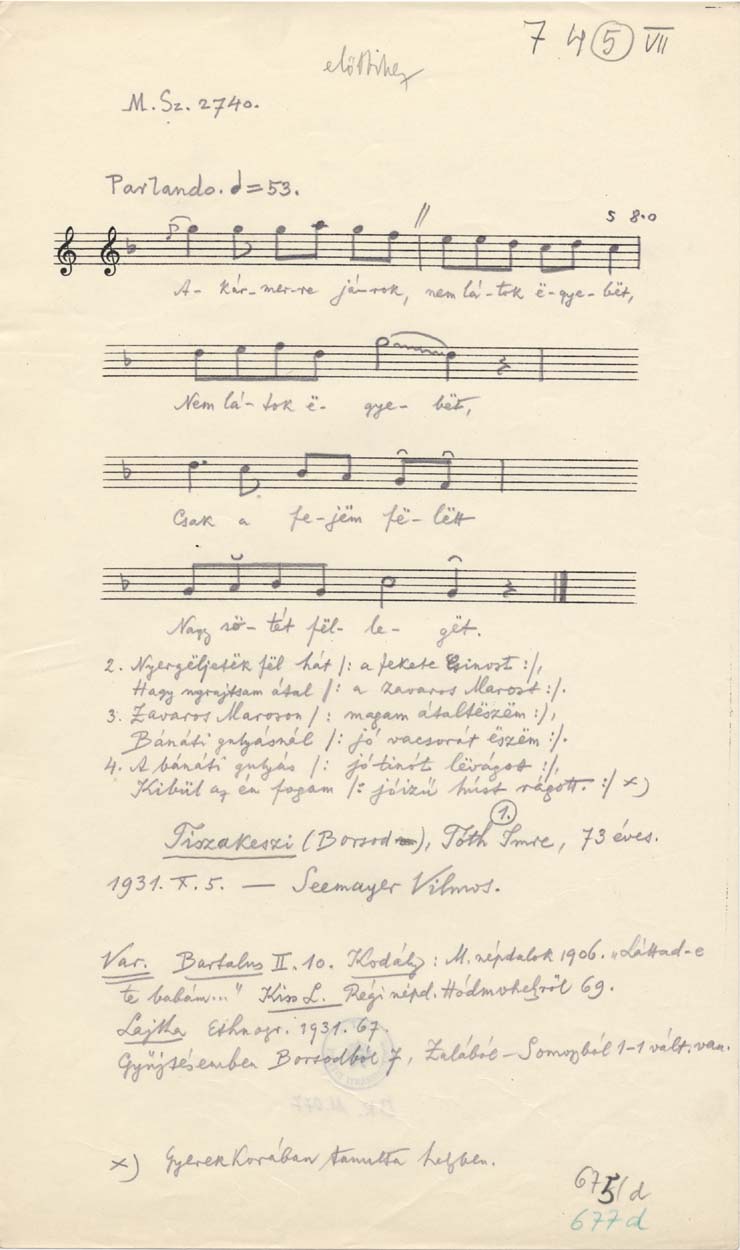 7 4 5 VII
előttihez
M. Sz. 2740.
Parlando. = 53.
5 8·0
A- kár-mer-re já-rok, nem lá-tok ë-gye-bët,
Nem lá-tok ë- gye- bët,
Csak a fe-jëm fë-lëtt
Nagy sö-tét fël- le- gët.
2. Nyergëljetëk fël hát /: a fekete :/,
Hagy nyrajtsam átal /: a zavaros Marost :/.
3. Zavaros Maroson /: magam átaltëszëm :/,
Bánáti gulyásnál /: jó vacsorát ëszëm :/.
4. A bánáti gulyás /: jó tinót lëvágott :/,
Kibül az én fogam /: jóizű húst rágott. :/ x)
1.
Tiszakeszi (Borsod), Tóth Imre, 73 éves.
1931. X. 5. — Seemayer Vilmos.
Var. Bartalus II. 10. Kodály: M. népdalok 1906. „Láttad-e
te babám..." Kiss L. Régi népd. Hódmvhelyről 69.
Lajtha Ethnogr. 1931. 67.
Gyűjtésemben Borsodból 7, Zalából – Somogyból 1-1 vált. van.
x) Gyerekkorában tanulta helyben.
675/d
677d